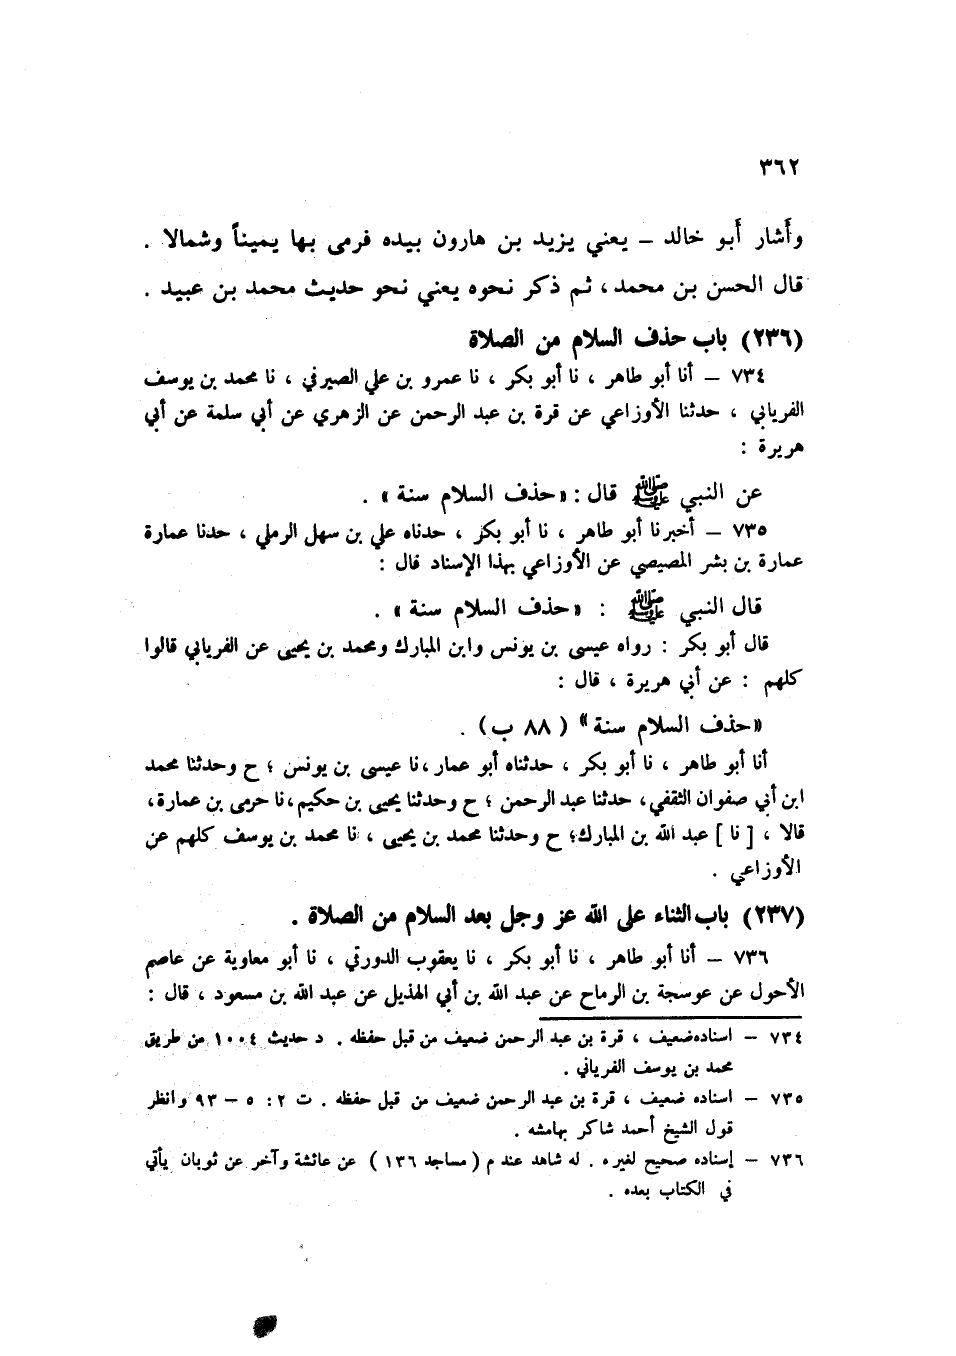 ٣٦٢
وأشار أبو خالد – يعني يزيد بن هارون بيده فرمى بها يميناً وشمالا .
قال الحسن بن محمد ، ثم ذكر نحوه يعني نحو حديث محمد بن عبيد .
(٢٣٦) باب حذف السلام من الصلاة
٧٣٤ – أنا أبو طاهر ، نا أبو بكر ، نا عمرو بن علي الصيرفي ، نا محمد بن يوسف
الفريابي ، حدثنا الأوزاعي عن قرة بن عبد الرحمن عن الزهري عن أبي سلمة عن أبي
هريرة :
عن النبي ﷺ قال : «حذف السلام سنة» .
٧٣٥ – أخبرنا أبو طاهر ، نا أبو بكر ، حدناه علي بن سهل الرملي ، حدنا عمارة
عمارة بن بشر المصيصي عن الأوزاعي بهذا الإسناد قال :
قال النبي ﷺ : «حذف السلام سنة» .
قال أبو بكر : رواه عيسى بن يونس وابن المبارك ومحمد بن يحيى عن الفريابي قالوا
كلهم : عن أبي هريرة ، قال :
«حذف السلام سنة» ( ٨٨ ب) .
أنا أبو طاهر ، نا أبو بكر ، حدثناه أبو عمار ،نا عيسى بن يونس ؛ ح وحدثنا محمد
ابن أبي صفوان الثقفي، حدثنا عبد الرحمن ؛ ح وحدثنا يحيى بن حكيم،نا حرمى بن عمارة،
قالا ، [ نا ] عبد الله بن المبارك؛ ح وحدثنا محمد بن يحيى ، نا محمد بن يوسف كلهم عن
الأوزاعي .
(٢٣٧) باب الثناء على الله عز وجل بعد السلام من الصلاة .
٧٣٦ – أنا أبو طاهر ، نا أبو بكر ، نا يعقوب الدورقي ، نا أبو معاوية عن عاصم
الأحول عن عوسجة بن الرماح عن عبد الله بن أبي الهذيل عن عبد الله بن مسعود ، قال :
٧٣٤ – اسناده ضعيف ، قرة بن عبد الرحمن ضعيف من قبل حفظه . د حديث ١٠٠٤ من طريق
محمد بن يوسف الفريابي .
٧٣٥ – اسناده ضعيف ، قرة بن عبد الرحمن ضعيف من قبل حفظه . ت ٢ : ٥ – ٩٣ وانظر
قول الشيخ أحمد شاكر بهامشه .
٧٣٦ – إسناده صحيح لغيره . له شاهد عند م ( مساجد ١٣٦ ) عن عائشة وآخر عن ثوبان يأتي
في الكتاب بعده .